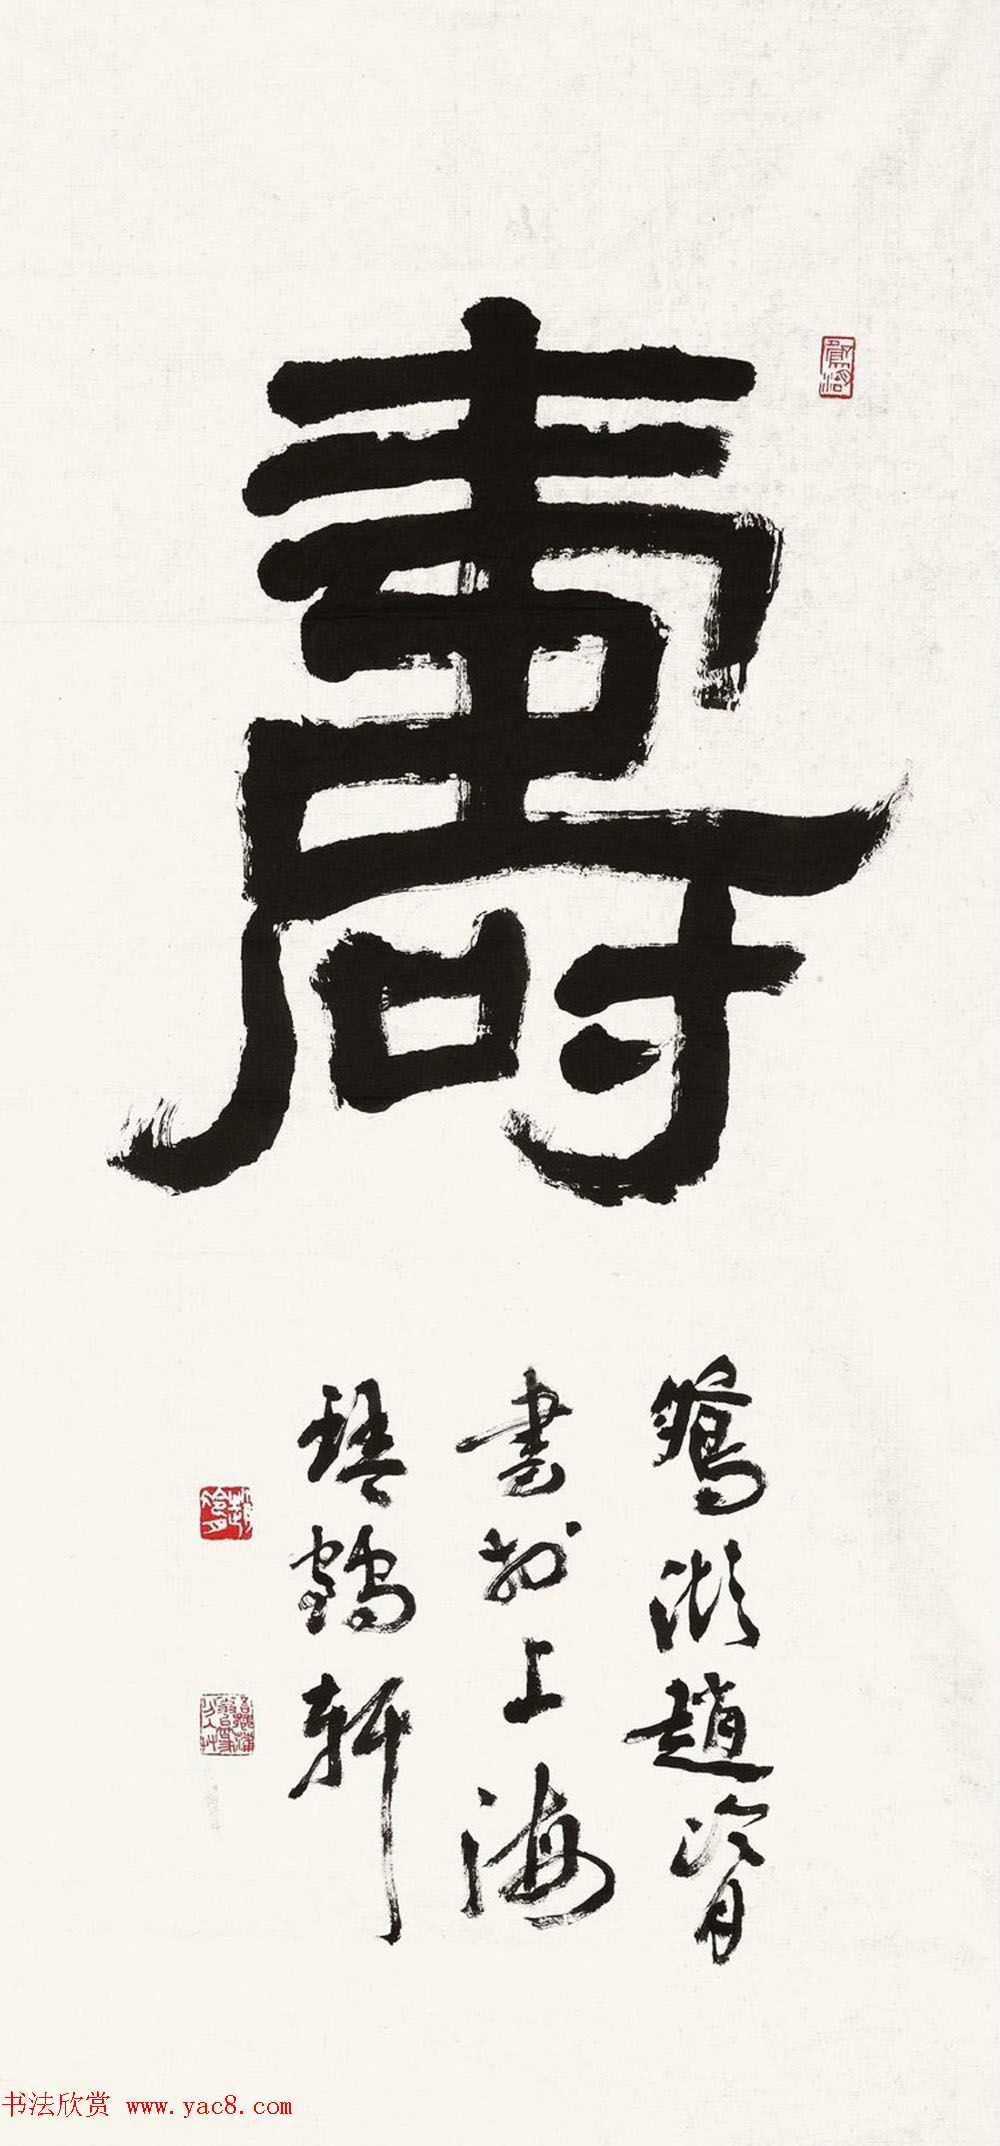 壽
鴛湖趙冷月
書於上海
琴鶴軒
书法欣赏 www.yac8.com